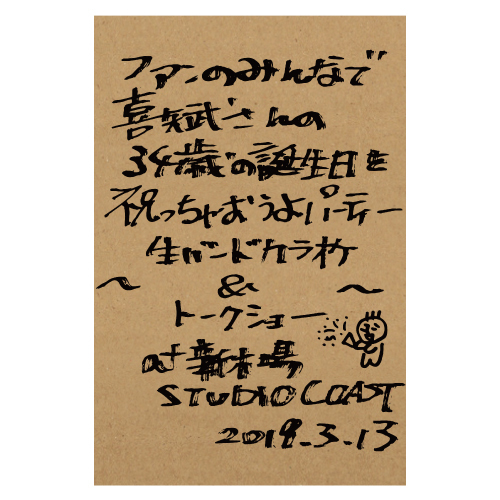 ファンのみんなで
喜矢武さんの
34歳の誕生日を
祝っちゃおうよパーティー
生バンドカラオケ
〜&〜
トークショー
at 新木場
STUDIO COAST
2019.3.13